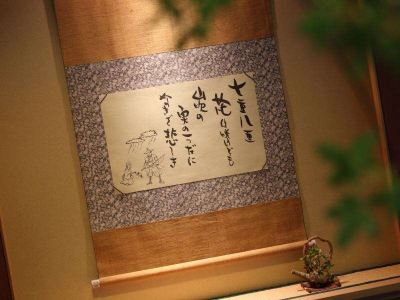 七重八重
花は咲けども
山吹の
実の一つだに
なきぞ悲しき